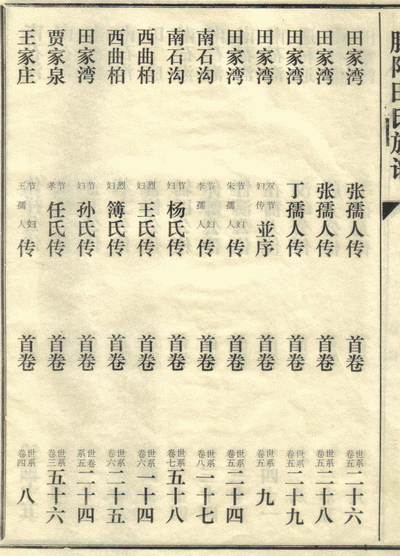 田氏族
田家湾 张孺人传 首卷 世系卷五 二十六
田家湾 张孺人传 首卷 世系卷五 二十八
田家湾 丁孺人传 首卷 世系卷五 二十九
田家湾 双节妇传並序 首卷 世系卷五 九
田家湾 节妇朱孺人传 首卷 世系卷五 二十四
南石沟 节妇李孺人传 首卷 世系卷八 一十七
南石沟 节妇杨氏传 首卷 世系卷七 五十八
西曲柏 烈妇王氏传 首卷 世系卷六 一十四
西曲柏 烈妇簿氏传 首卷 世系卷六 二十五
田家湾 节妇孙氏传 首卷 世系卷五 二十四
贾家泉 节孝任氏传 首卷 世系卷三 五十六
王家庄 节妇王孺人传 首卷 世系卷四 八